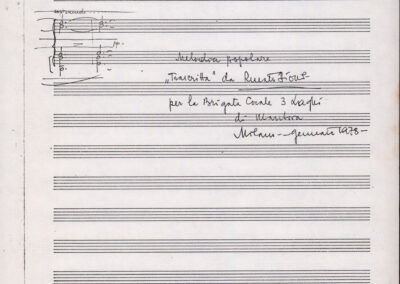 Melodia popolare
„Trascritta" da Renato Dionisi
per la Brigata Corale 3 Laghi
di Mantova
Milano – gennaio 1978 –